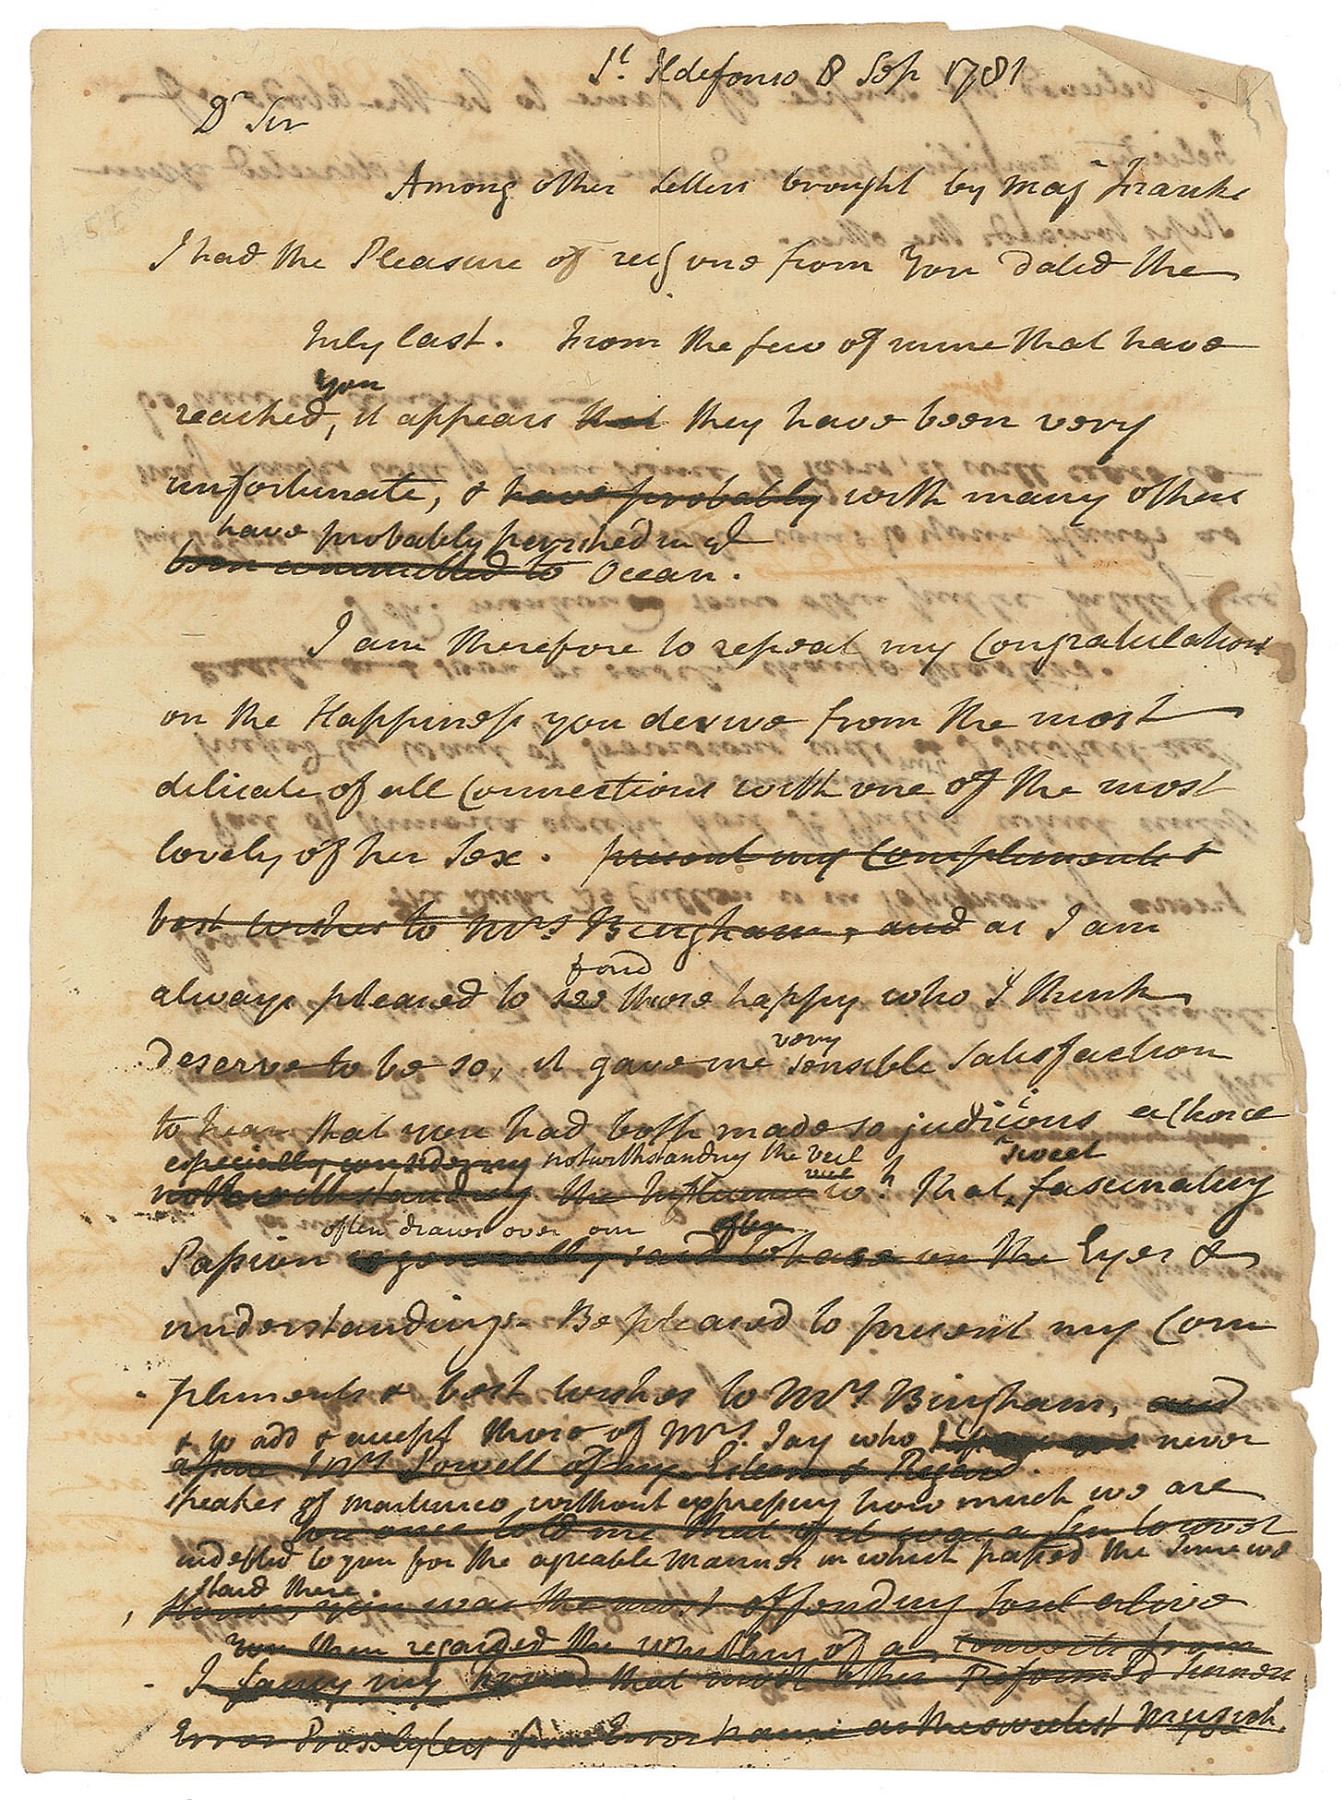 St. Ildefonso 8 Sep 1781
Dr Sir
Among other Letters brought by Majr Franks
I had the Pleasure of recg one from You dated the
July last. From the few of mine that have
you
reached, it appears that they have been very
unfortunate, & have probably with many others
have probably perished in ye
been committed to Ocean.
I am therefore to repeat my Congratulations
on the Happiness you derive from the most
delicate of all Connections with one of the most
lovely of her Sex. present my Compliments &
best wishes to Mrs Bingham, and as I am
fond
always pleased to see those happy who I think
very
deserve to be so, it gave me sensible Satisfaction
to hear that you had both made so judicious a Choice
especially considering notwithstanding the veil
sweet
notwithstanding the Influence wh that, fascinating
often draws over our often
Passion is generally said to have on the Eyes &
understanding. Be pleased to present my Com
pliments & best wishes to Mrs Bingham, and
& to add & accept those of Mrs. Jay who never
assure Mrs Powell of my Esteem & Regard.
speakes of martinico without expressing how much we are
You once told me that if it was a sin to covet
indebted to you for the agreable Manner in which passed the Time we
staid there.
you was the most offending Soul alive
You then regarded the of a from
I fancy my friend that most other Reformed Sinners
Error Proselytes from Error have as the sweetest Musick.